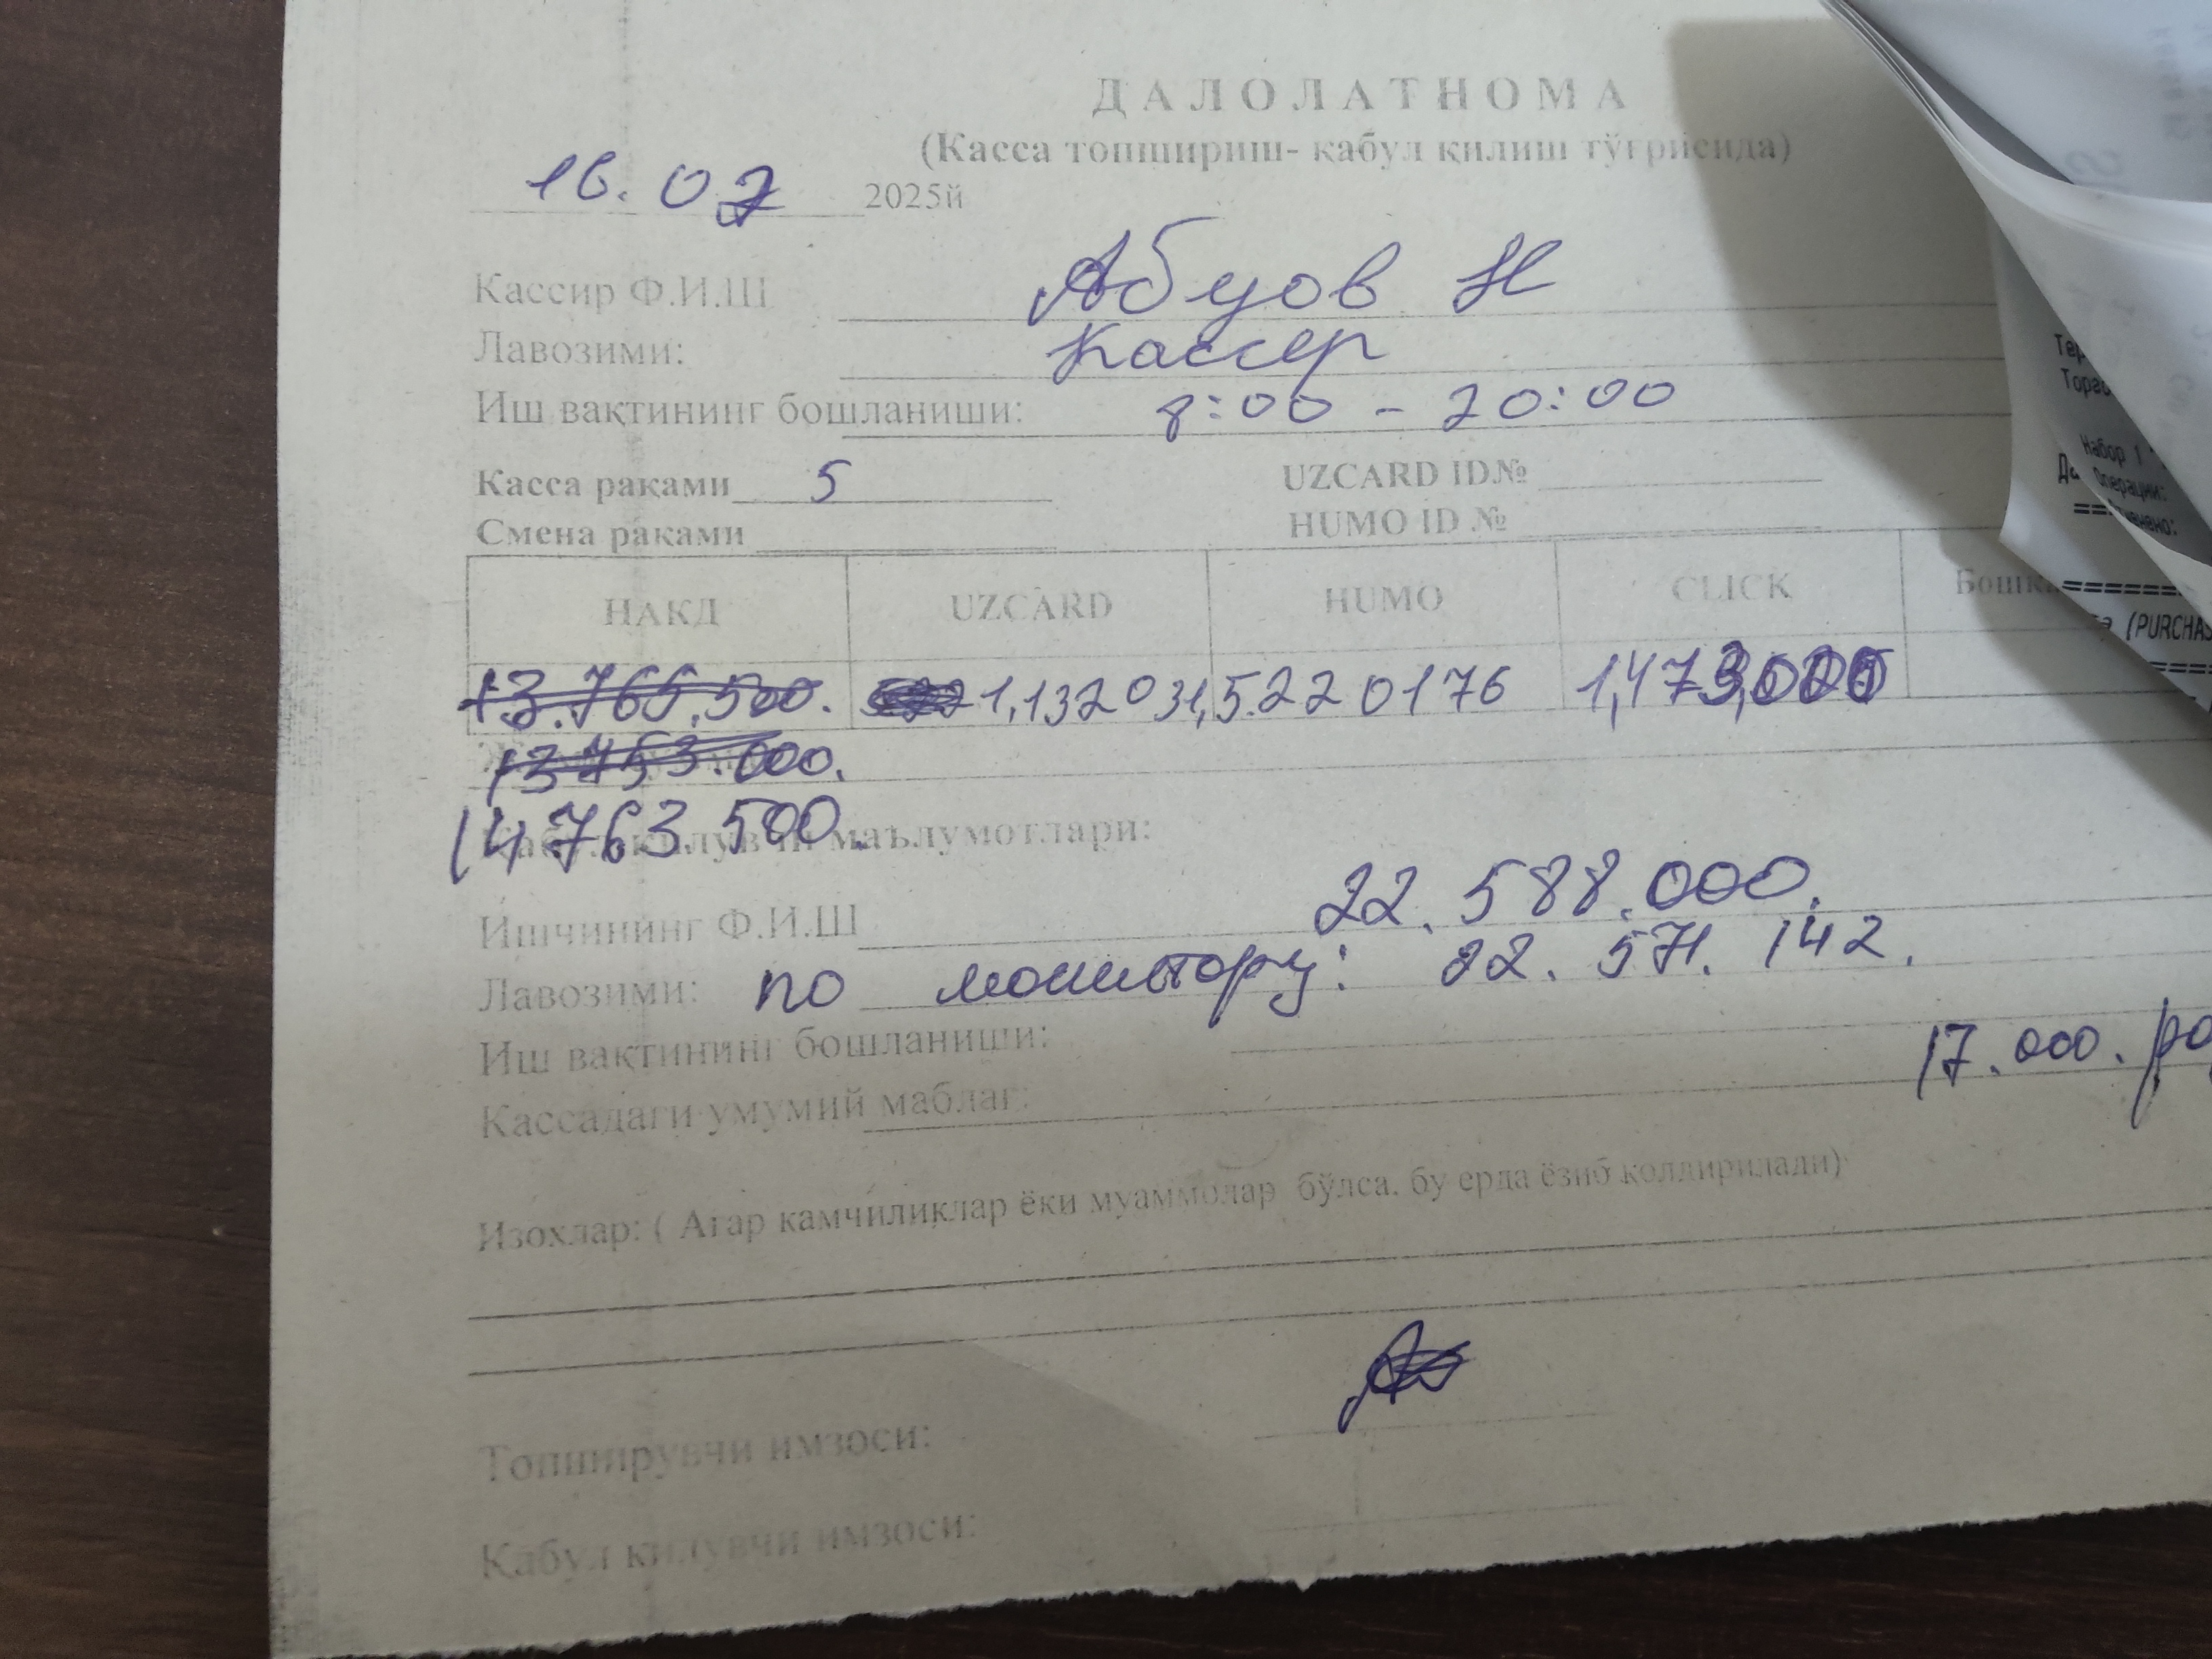 ДАЛОЛАТНОМА
(Касса топшириш- қабул қилиш тўғрисида)
16.07 2025й
Кассир Ф.И.Ш Абуов Н
Лавозими: Кассер
Иш вақтининг бошланиши: 8:00 - 20:00
Касса рақами 5 UZCARD ID№
Смена рақами HUMO ID №
НАКД UZCARD HUMO CLICK
13.765.500. 1,132 031, 5.220176 1,473,000
13753.000.
14.763.500. маълумотлари:
22.588.000.
Ишчининг Ф.И.Ш
Лавозими: по монитору: 22. 571. 142.
Иш вақтининг бошланиши:
17.000.
Кассадаги умумий маблағ:
Изохлар: ( Агар камчиликлар ёки муаммолар бўлса, бу ерда ёзиб қолдирилади)
Топширувчи имзоси:
Қабул қилувчи имзоси:
Набор 1
Операции:
(PURCHAS